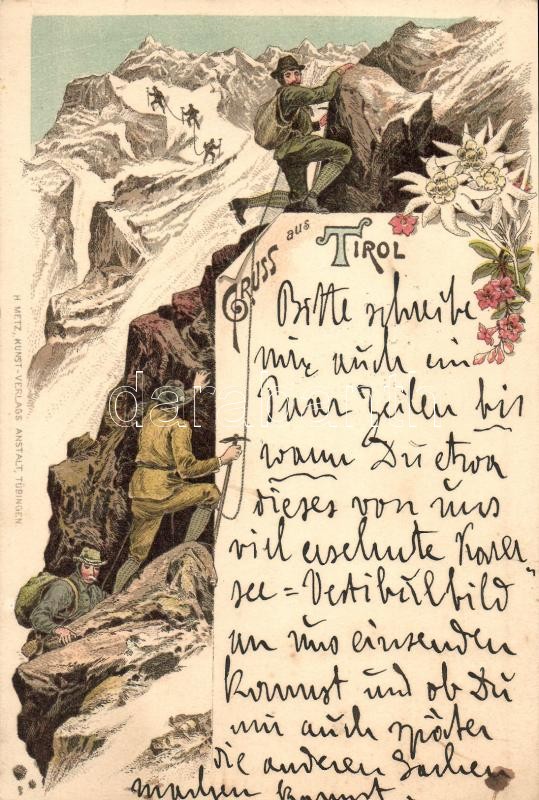 GRUSS aus TIROL
Bitte schreibe
mir auch ein
Paar Zeilen bis
wann Du etwa
dieses von uns
viel ersehnte Karer-
see=Vestibülbild
an uns einsenden
kannst und ob Du
mir auch später
die anderen Sachen
machen kannst.
H. METZ, KUNST-VERLAGS ANSTALT, TÜBINGEN.
darabanth